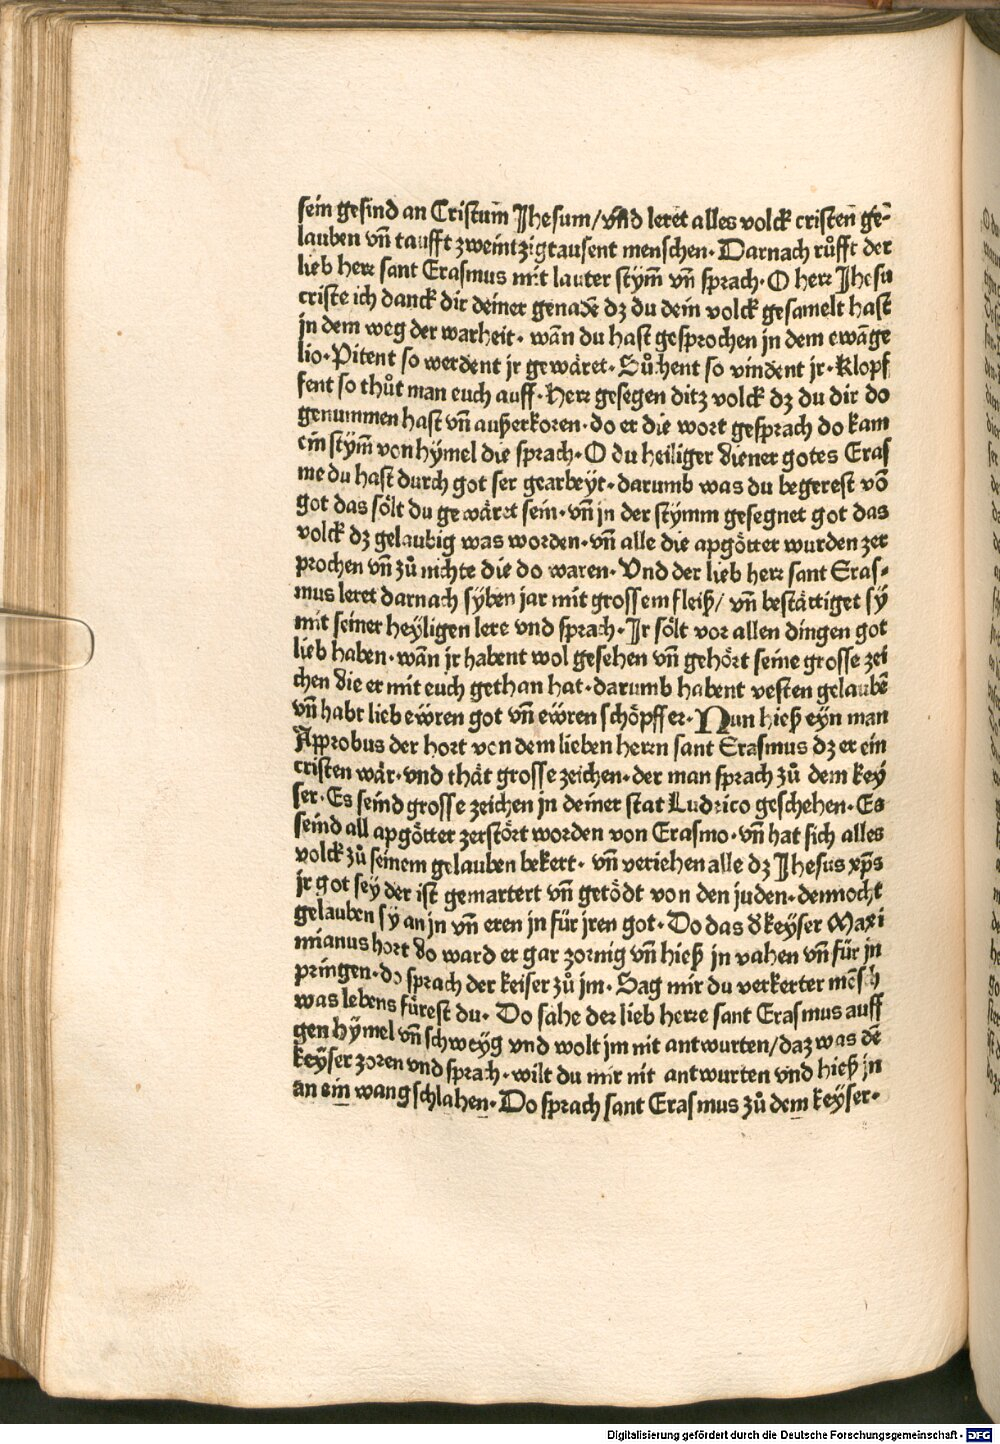 sein gesind an Cristum Jhesum/vnd leret alles volck cristen ge⸗
lauben vn̄ taufft zweintzigtausent menschen· Darnach růfft der
lieb herr sant Erasmus mit lauter stym̄ vn̄ sprach· O herr Jhesu
criste ich danck dir deiner genadē dz du dein volck gesamelt hast
in dem weg der warheit· wān du hast gesprochen in dem ewāge
lio· Pitent so werdent jr gewäret· Sůchent so vindent jr· Klopf
fent so thůt man euch auff· Herr gesegen ditz volck dz du dir do
genummen hast vn̄ außerkoren· do er die wort gesprach do kam
ein stym̄ von hÿmel die sprach· O du heiliger diener gotes Eras
me du hast durch got ser gearbeÿt· darumb was du begerest vō
got das sölt du gewäret sein· vn̄ in der stÿmm gesegnet got das
volck dz gelaubig was worden· vn̄ alle die apgötter wurden zer
prochen vn̄ zů nichte die do waren· Vnd der lieb herr sant Eras⸗
mus leret darnach sÿben jar mit grossem fleiß/ vn̄ bestättiget sÿ
mit seiner heÿligen lere vnd sprach· Jr sölt vor allen dingen got
lieb haben· wān jr habent wol gesehen vn̄ gehört seine grosse zei
chen die er mit euch gethan hat· darumb habent vesten gelaubē
vn̄ habt lieb eẅren got vn̄ eẅren schöpffer· Nun hieß eÿn man
Approbus der hort von dem lieben herrn sant Erasmus dz er ein
cristen wär· vnd thät grosse zeichen· der man sprach zů dem keÿ
ser· Es seind grosse zeichen in deiner stat Ludrico geschehen· Es
seind all apgötter zerstört worden von Erasmo· vn̄ hat sich alles
volck zů seinem gelauben bekert· vn̄ veriehen alle dz Jhesus xp̄s
jr got seÿ der ist gemartert vn̄ getödt von den juden· dennocht
gelauben sÿ an jn vn̄ eren jn für jren got· Do das d̕ keÿser Maxi
mianus hort do ward er gar zornig vn̄ hieß jn vahen vn̄ für jn
pringen· do sprach der keiser zů jm· Sag mir du verkerter mēsch
was lebens fürest du· Do sahe der lieb herre sant Erasmus auff
gen hÿmel vn̄ schweÿg vnd wolt jm nit antwurten/daz was dē
keÿser zoren vnd sprach· wilt du mir nit antwurten vnd hieß jn
an ein wang schlahen· Do sprach sant Erasmus zů dem keÿser·
Digitalisierung gefördert durch die Deutsche Forschungsgemeinschaft - DFG